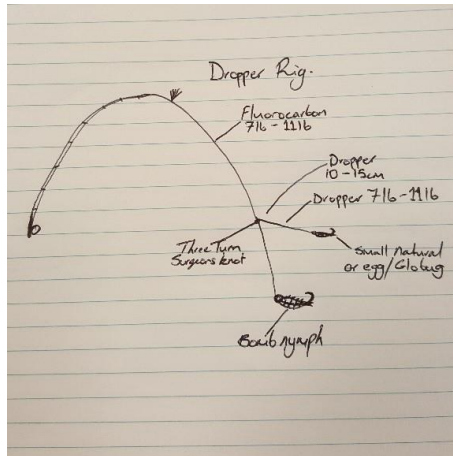 Dropper Rig.
Fluorocarbon
7lb - 11lb
Dropper
10 - 15cm
Dropper 7lb - 11lb
Three Turn
Surgeons knot
Small natural
or egg/Globug
Bomb nymph